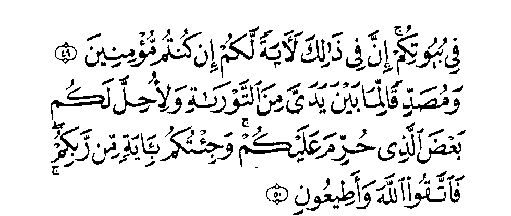 فِى بُيُوتِكُمْ ۚ إِنَّ فِى ذَٰلِكَ لَءَايَةً لَّكُمْ إِن كُنتُم مُّؤْمِنِينَ ۝٤٩
وَمُصَدِّقًا لِّمَا بَيْنَ يَدَىَّ مِنَ ٱلتَّوْرَىٰةِ وَلِأُحِلَّ لَكُم
بَعْضَ ٱلَّذِى حُرِّمَ عَلَيْكُمْ ۚ وَجِئْتُكُم بِـَٔايَةٍ مِّن رَّبِّكُمْ ۚ
فَٱتَّقُوا۟ ٱللَّهَ وَأَطِيعُونِ ۝٥٠